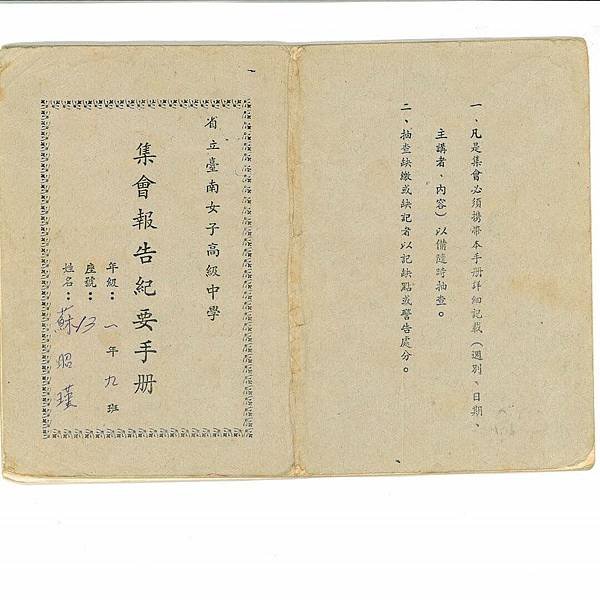 一、凡是集會必須携帶本手册詳細記載（週別、日期、
主講者、內容）以備隨時抽查。
二、抽查缺繳或缺記者以記缺點或警告處分。
省立臺南女子高級中學
集會報告紀要手册
年級：一年九班
座號：13
姓名：蘇昭